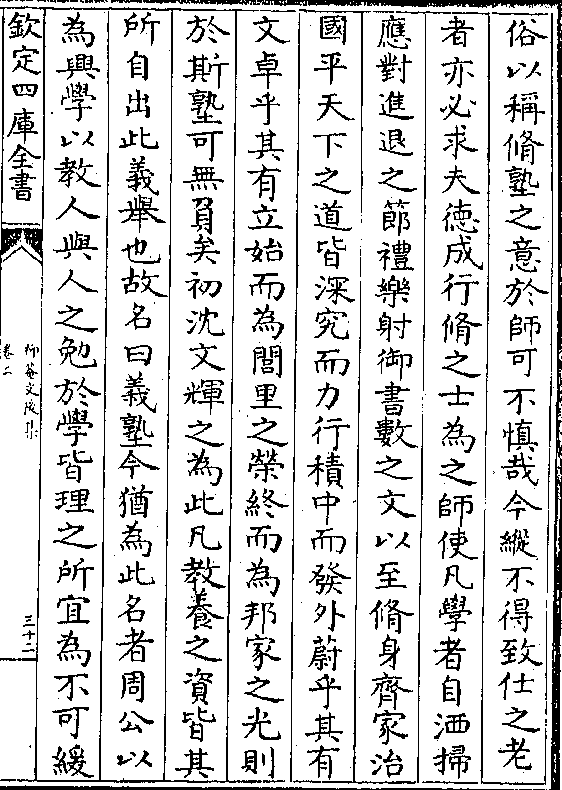 俗以稱脩塾之意於師可不慎哉今縱不得致仕之老
者亦必求夫德成行脩之士為之師使凡學者自洒掃
應對進退之節禮樂射御書數之文以至脩身齊家治
國平天下之道皆深究而力行積中而發外蔚乎其有
文卓乎其有立始而為閭里之榮終而為邦家之光則
於斯塾可無負矣初沈文輝之為此凡教養之資皆其
所自出此義舉也故名曰義塾今猶為此名者周公以
為興學以教人與人之勉於學皆理之所宜為不可緩
欽定四庫全書
卷二
三十二